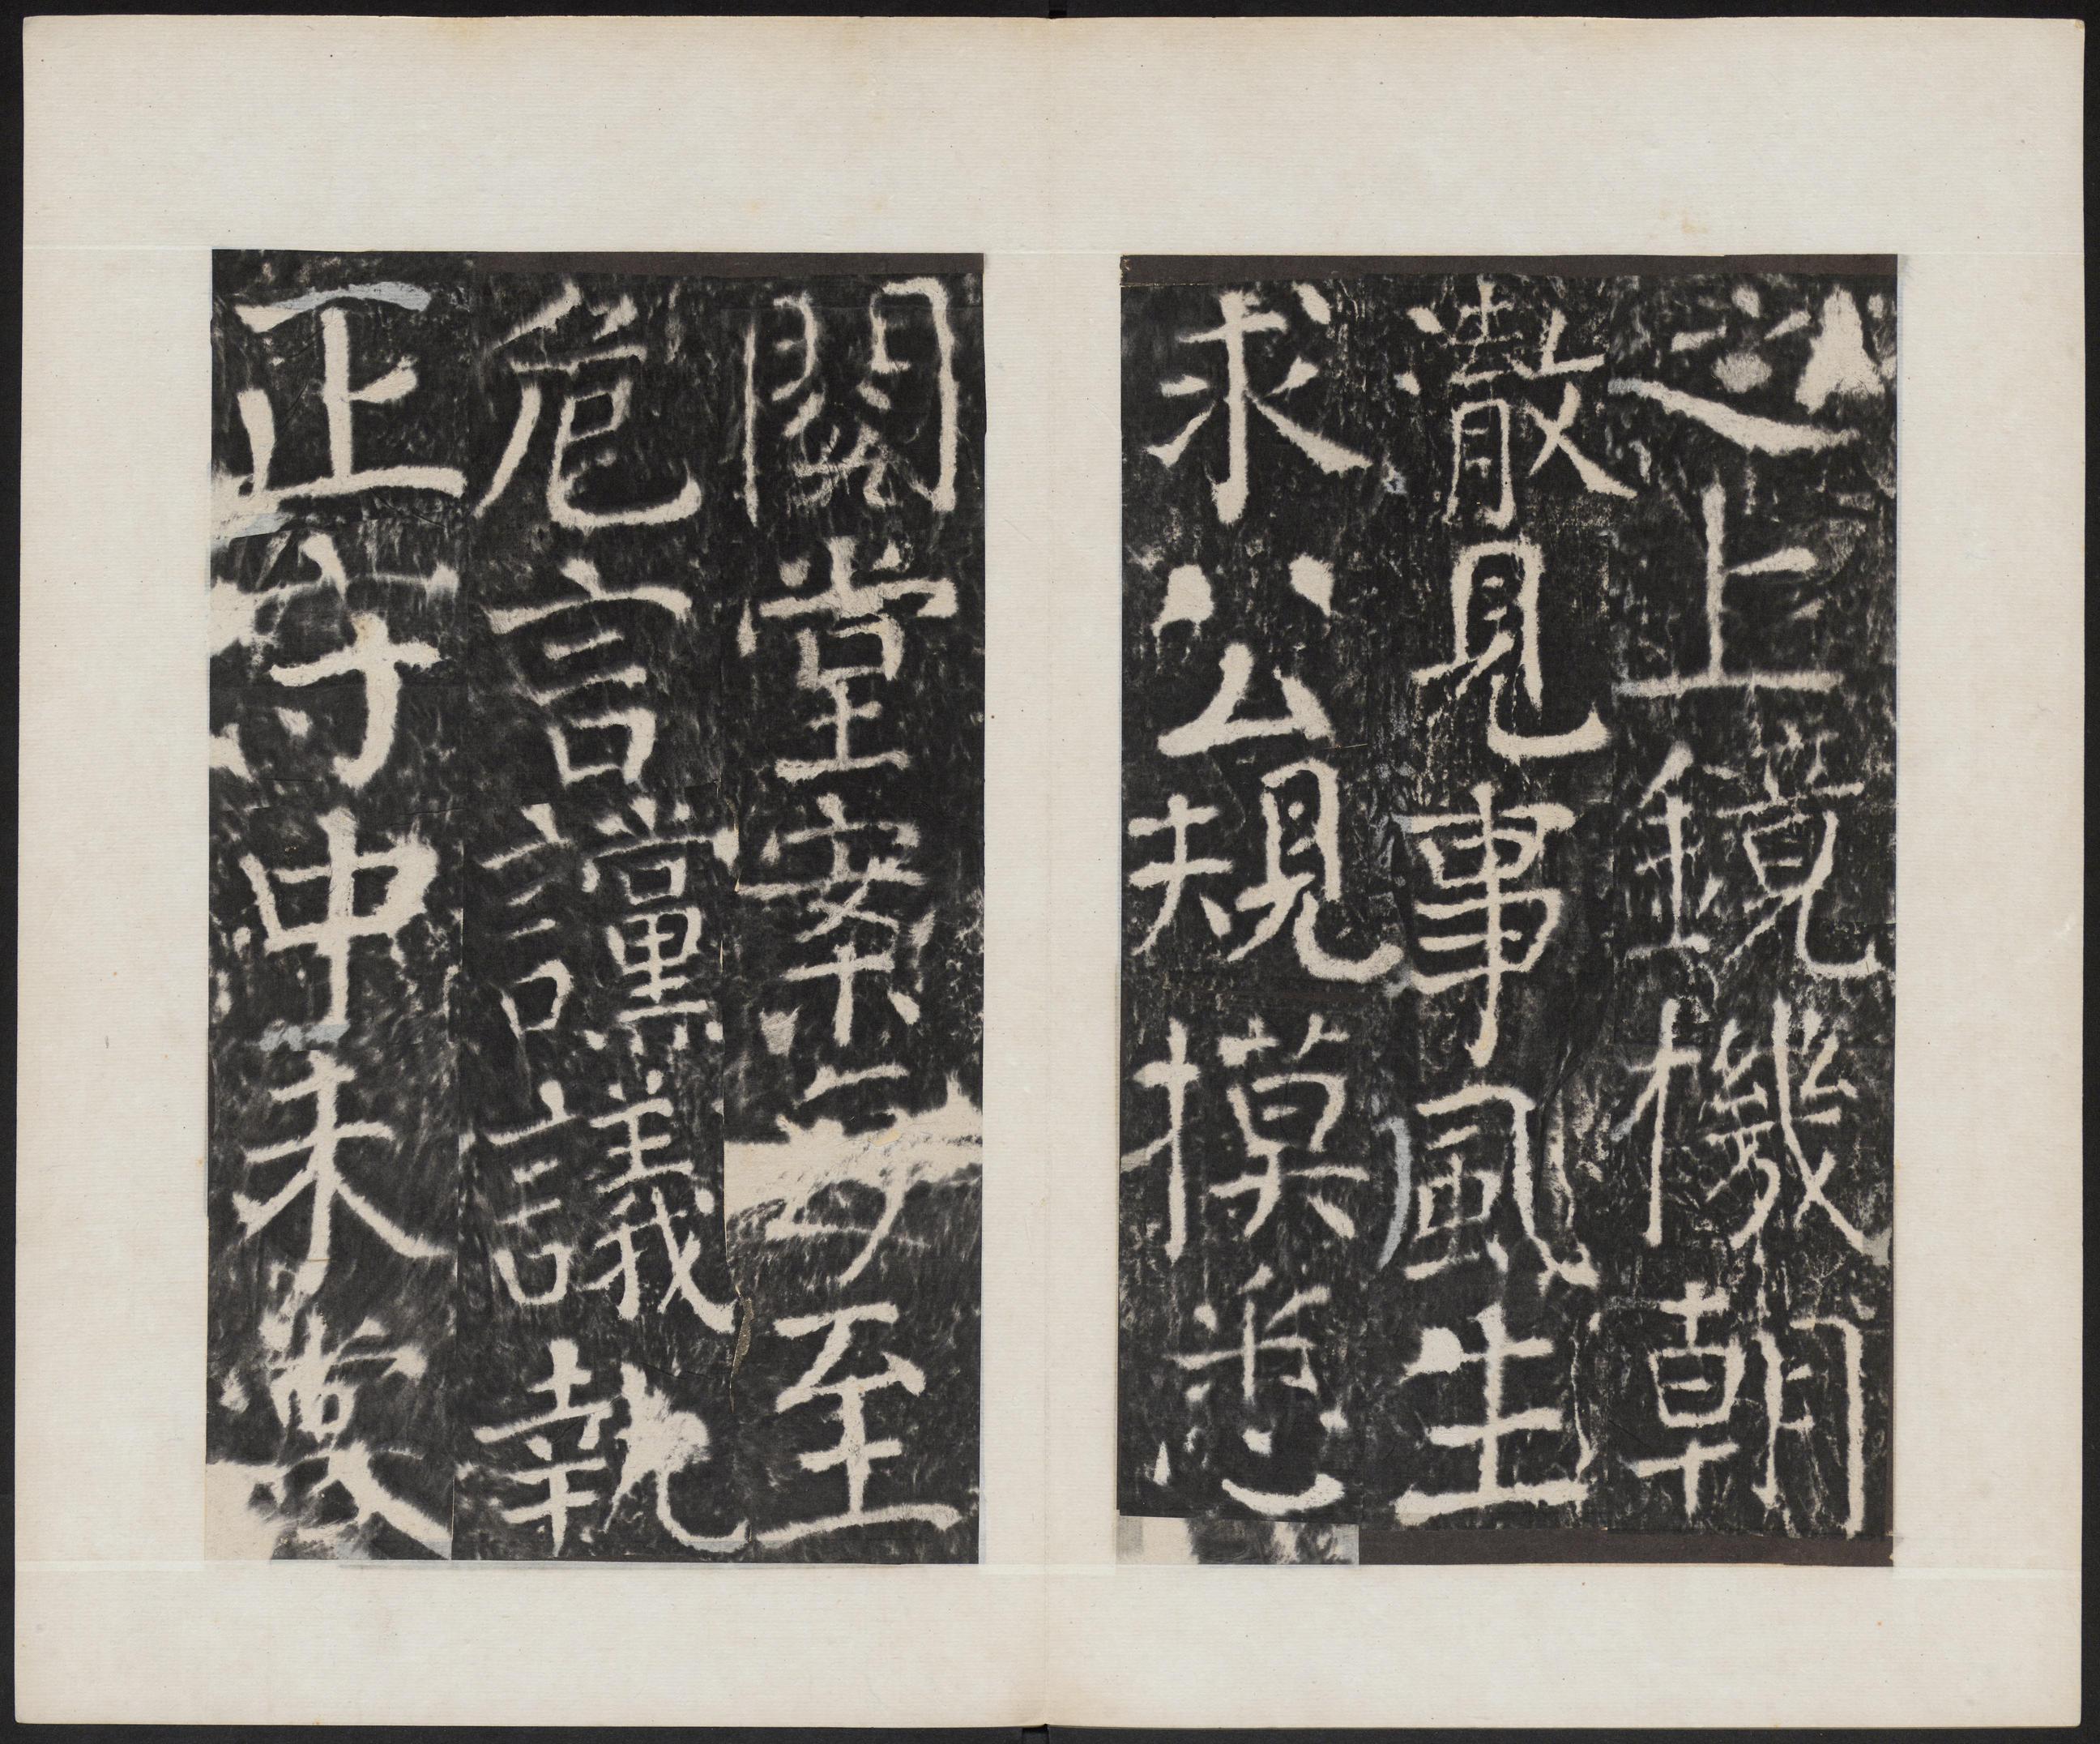 之上鏡機朝
散見事風生
求公規摸悉
閣堂案每至
危言讜議執
正守中未